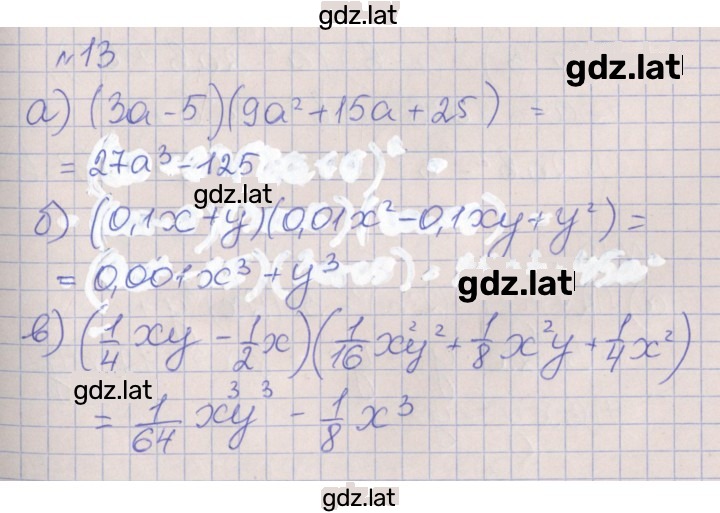 gdz.latl
№13
gdz.latl
а) (3a - 5)(9a² + 15a + 25) =
= 27a³ - 125
gdz.latl
б) (0,1x + y)(0,01x² - 0,1xy + y²) =
= 0,001x³ + y³
gdz.latl
в) (1/4 xy - 1/2 x)(1/16 x²y² + 1/8 x²y + 1/4 x²)
gdz.latl
= 1/64 x³y³ - 1/8 x³
gdz.latl